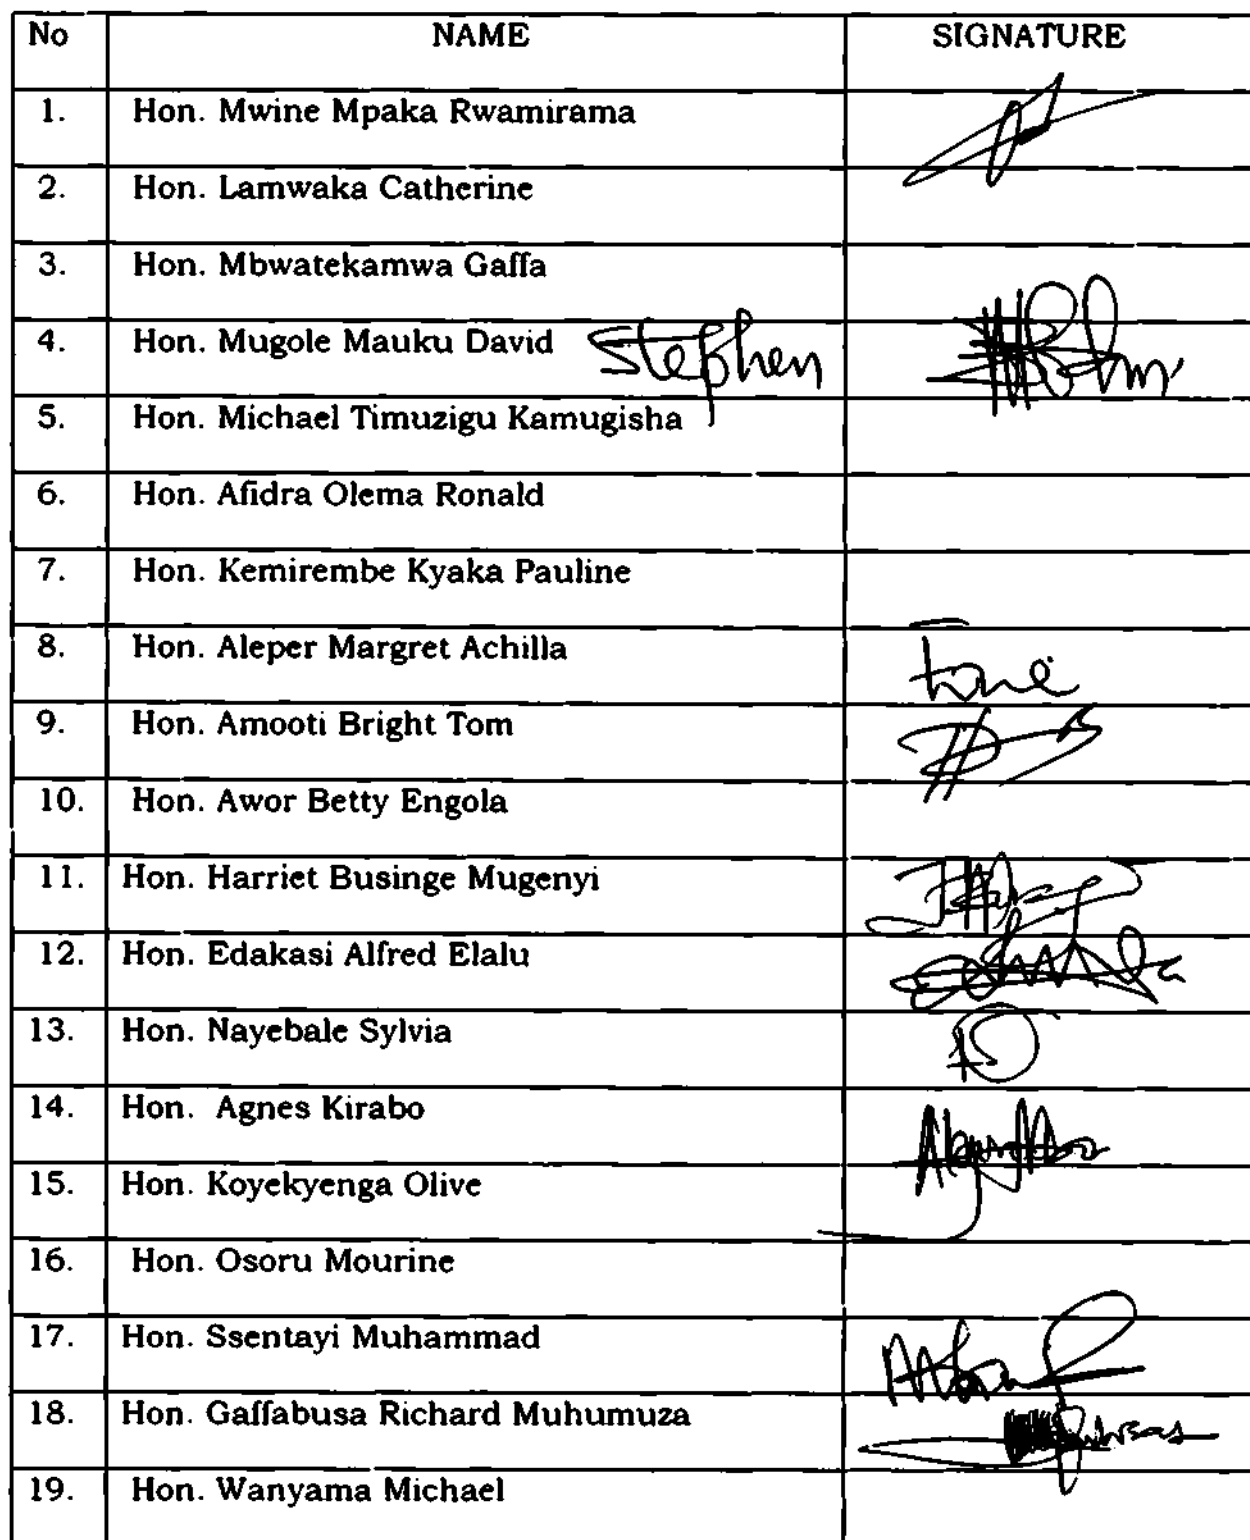 No NAME SIGNATURE
1. Hon. Mwine Mpaka Rwamirama
2. Hon. Lamwaka Catherine
3. Hon. Mbwatekamwa Gaffa
4. Hon. Mugole Mauku David Stephen
5. Hon. Michael Timuzigu Kamugisha
6. Hon. Afidra Olema Ronald
7. Hon. Kemirembe Kyaka Pauline
8. Hon. Aleper Margret Achilla
9. Hon. Amooti Bright Tom
10. Hon. Awor Betty Engola
11. Hon. Harriet Businge Mugenyi
12. Hon. Edakasi Alfred Elalu
13. Hon. Nayebale Sylvia
14. Hon. Agnes Kirabo
15. Hon. Koyekyenga Olive
16. Hon. Osoru Mourine
17. Hon. Ssentayi Muhammad
18. Hon. Gaffabusa Richard Muhumuza
19. Hon. Wanyama Michael